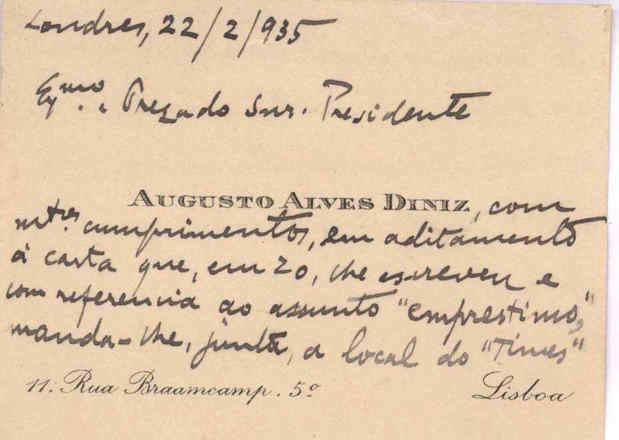 Londres, 22/2/935
Exmo. e Prezado Snr. Presidente
AUGUSTO ALVES DINIZ, com
mtos. cumprimentos, em aditamento
á carta que, em 20, lhe escreveu e
com referencia ao assunto "emprestimo",
manda-lhe, junta, a local do "Times"
11. Rua Braamcamp. 5º Lisboa